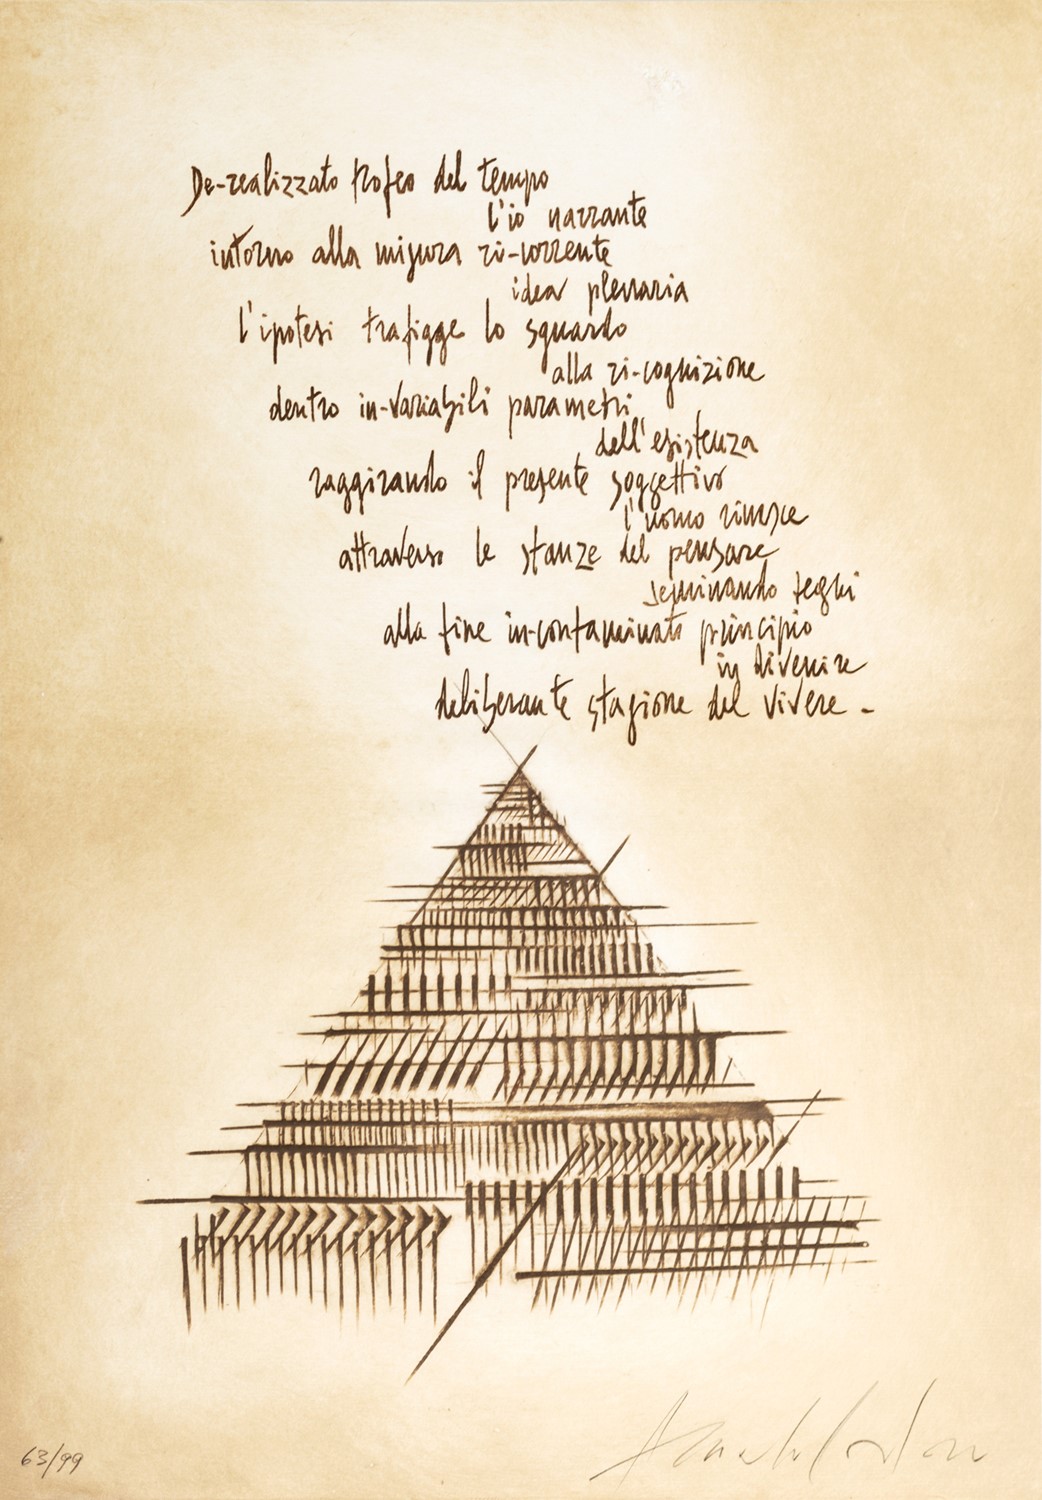 De-realizzato trofeo del tempo
l'io narrante
intorno alla misura ri-corrente
idea plenaria
l'ipotesi trafigge lo sguardo
alla ri-cognizione
dentro in-variabili parametri
dell'esistenza
raggirando il presente soggettivo
l'uomo riesce
attraverso le stanze del pensare
seminando
alla fine in-contaminato principio
in divenire
deliberante stagione del vivere -
63/99